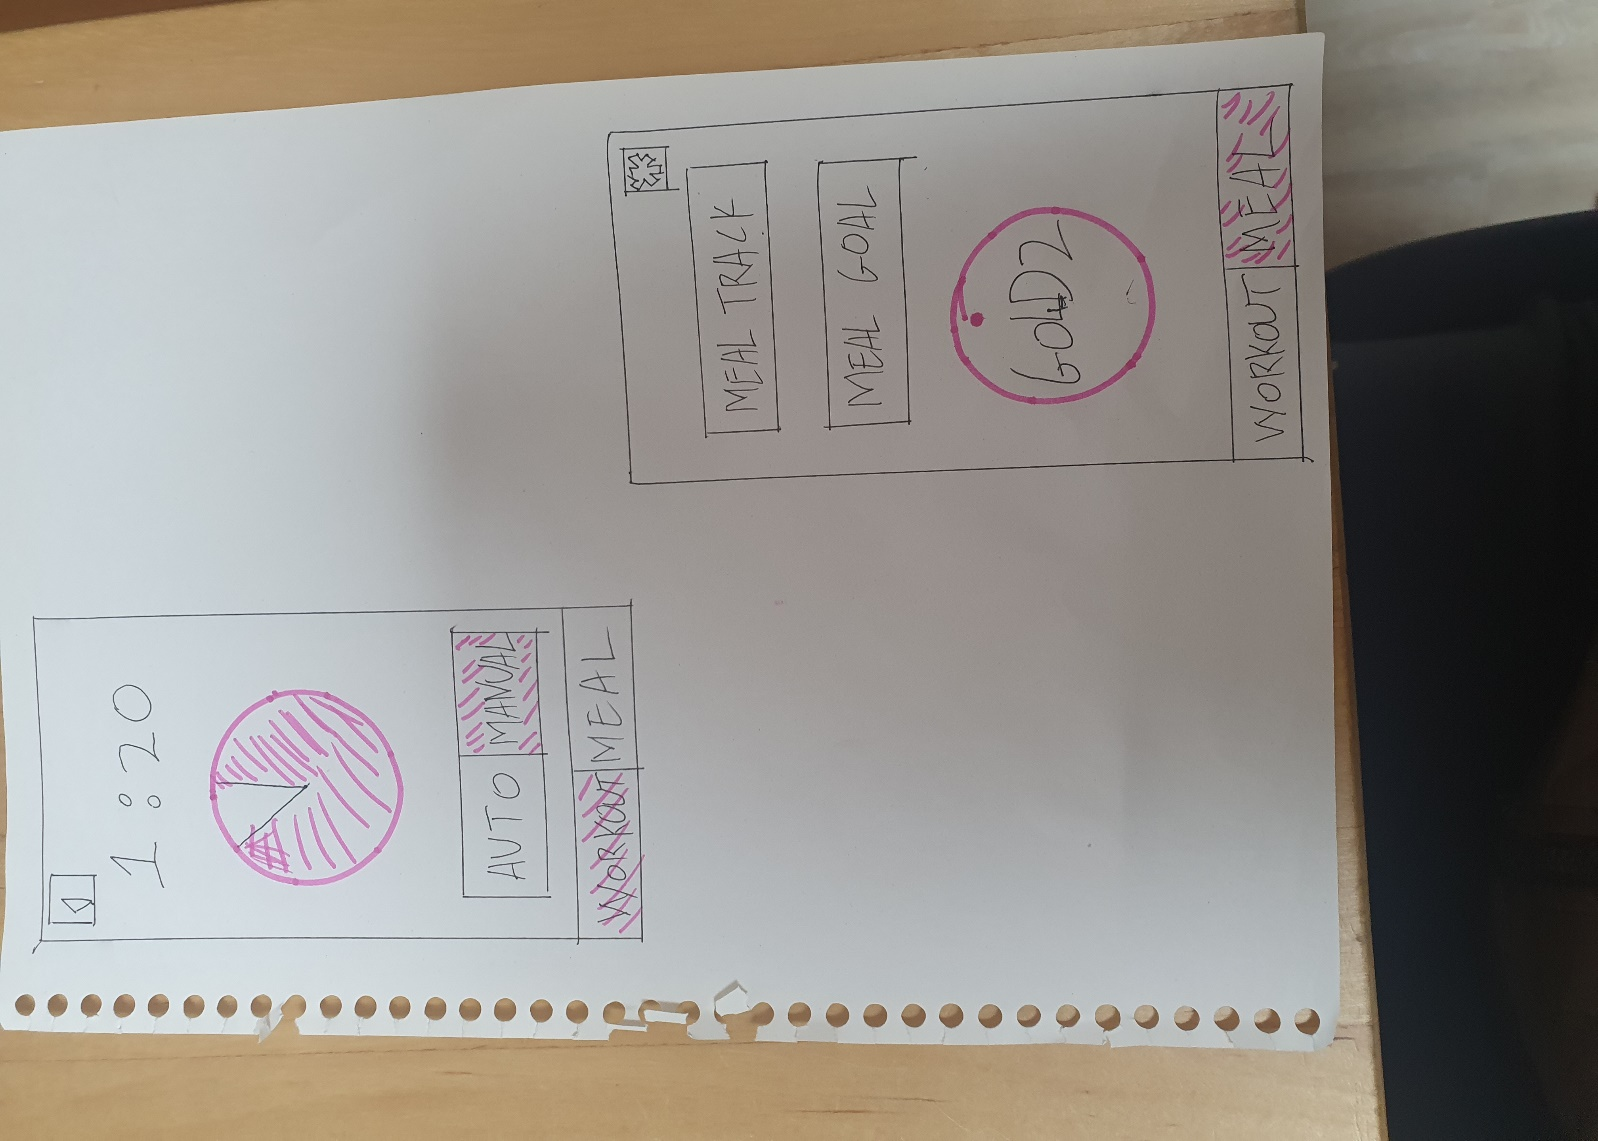 1:20
AUTO MANUAL
WORKOUT MEAL
MEAL TRACK
MEAL GOAL
GOLD2
WORKOUT MEAL